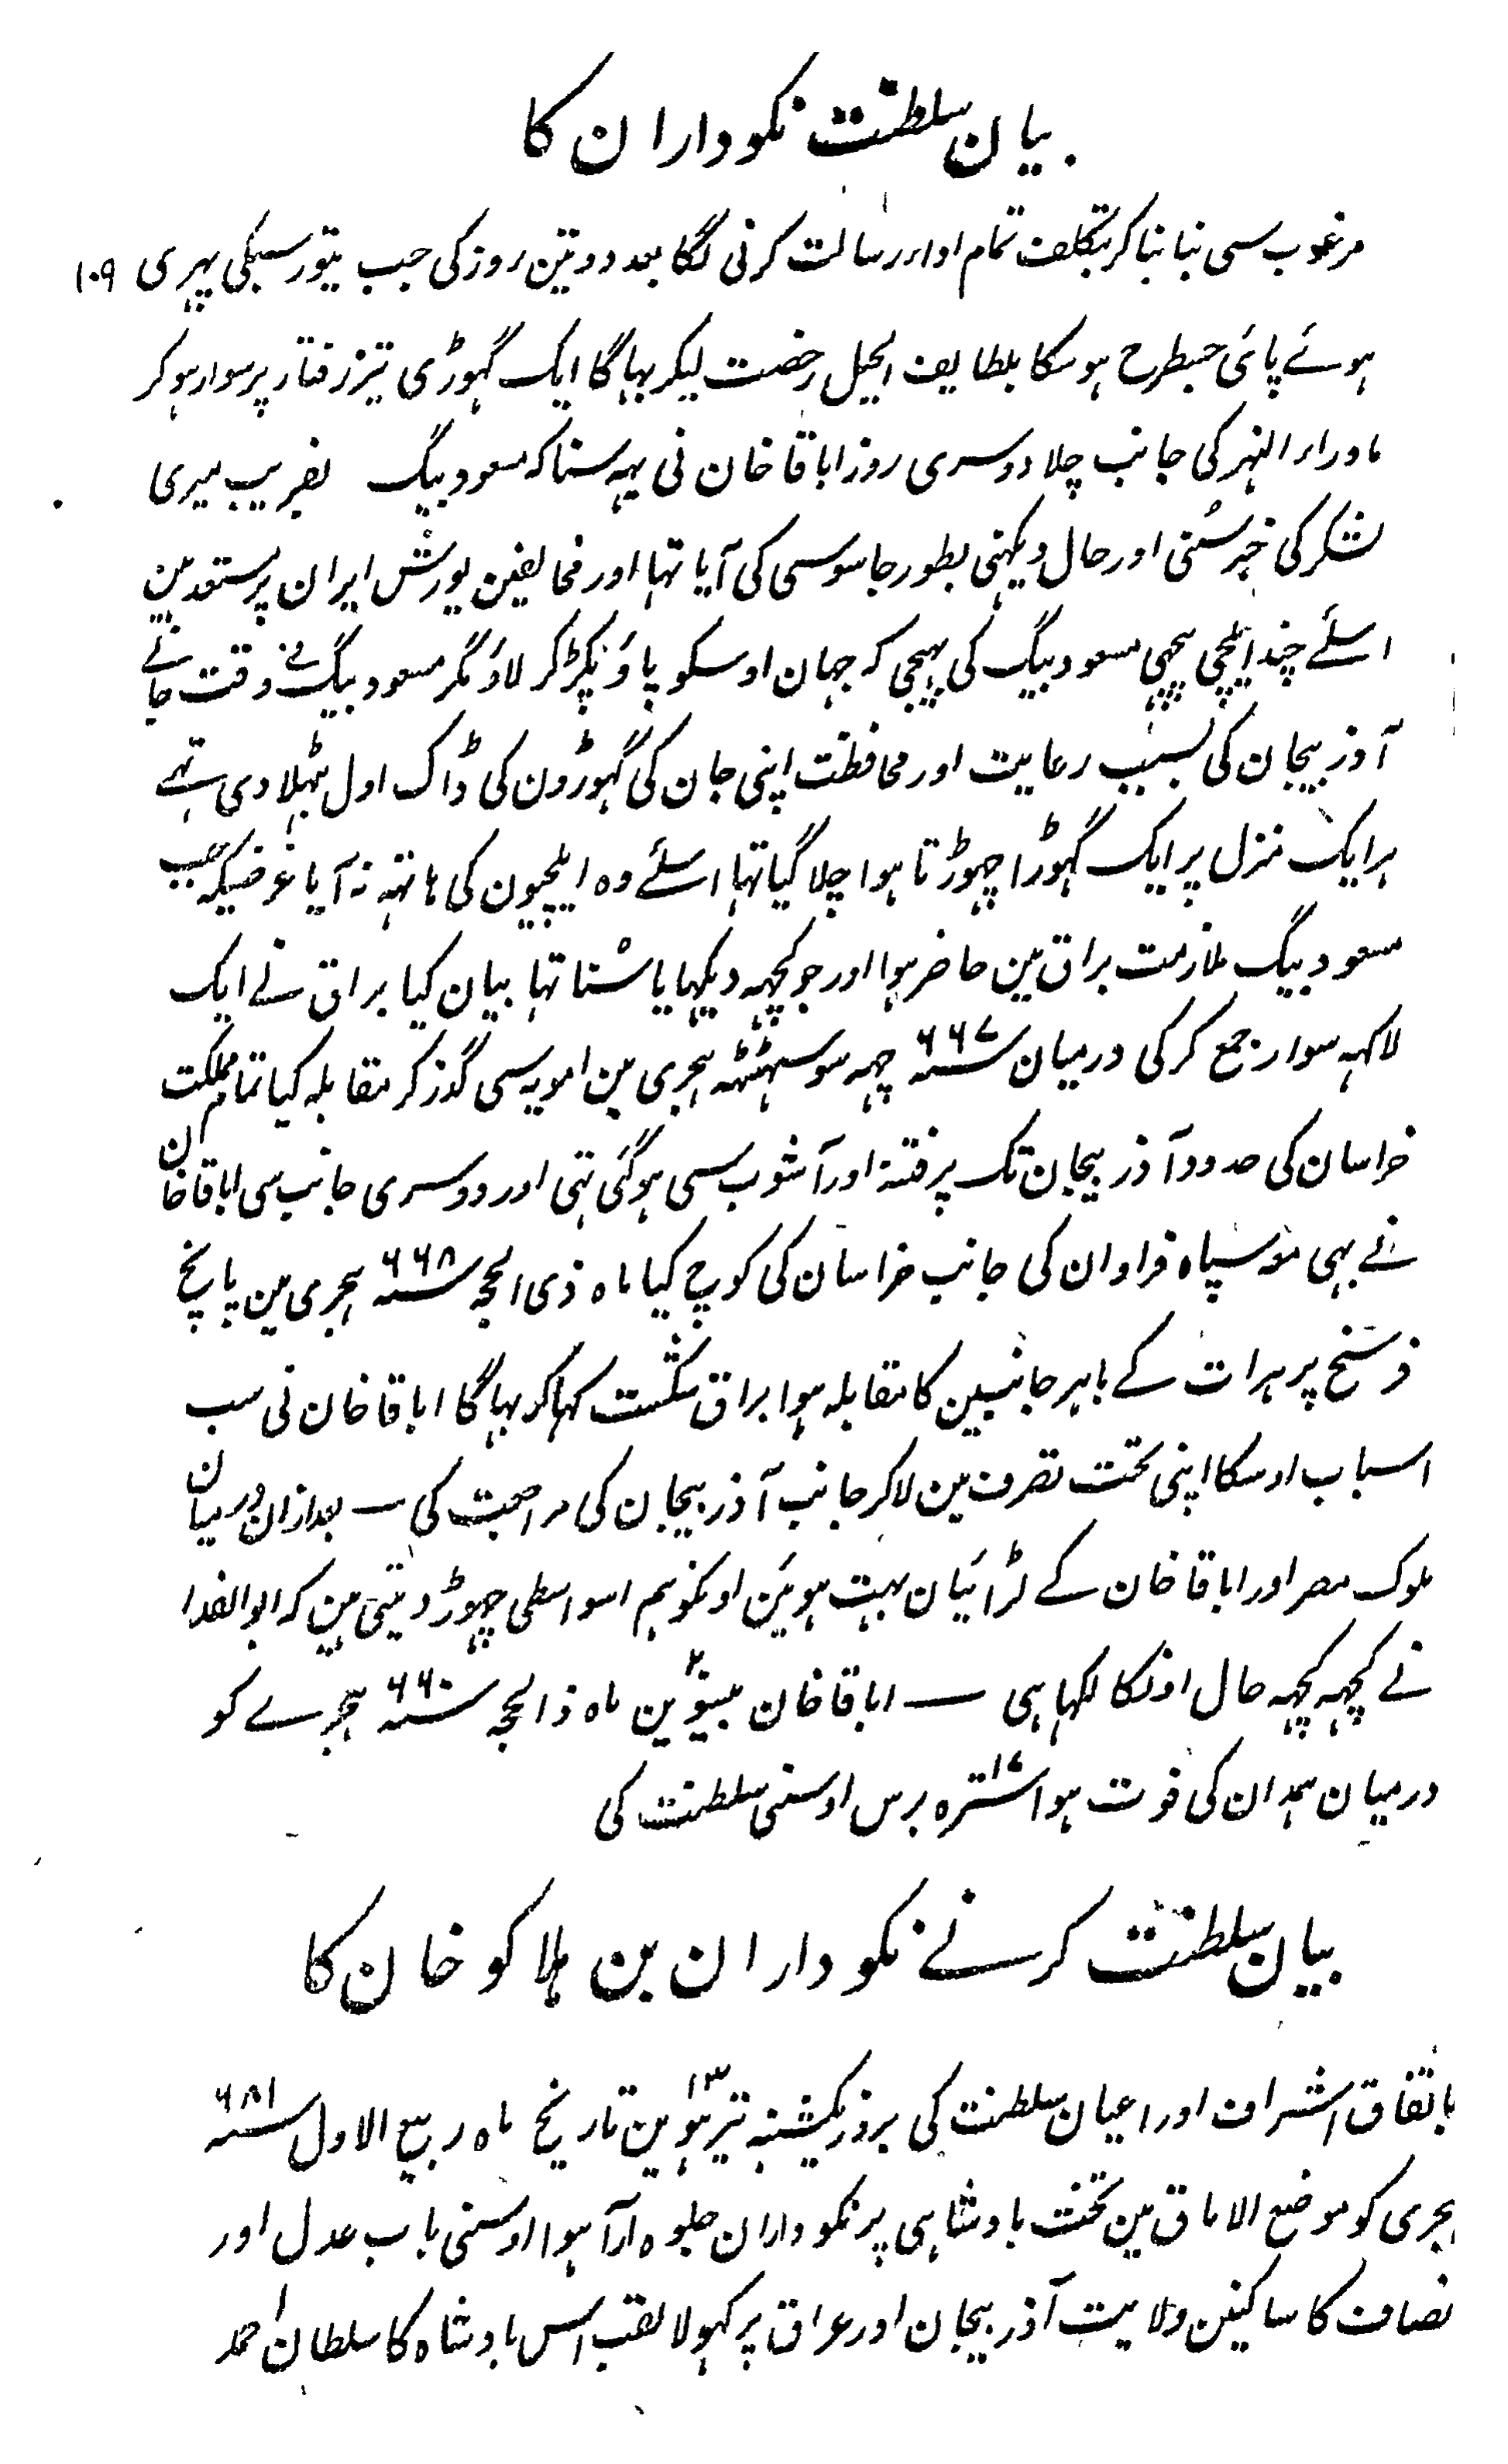 بیان سلطنت نکوداران کا
مرغوب سی بنا بنا کر بتکلف تمام اداء رسالت کرنی لگا بعد دو تین روز کی جب تیور سبکی پہری ۱۰۹
ہوئے پائی جسطرح ہو سکا بلطایف الحیل رخصت لیکر بہاگا ایک گہوڑی تیز رفتار پر سوار ہو کر
ماوراء النہر کی جانب چلا دوسری روز اباقا خان نی یہہ سنا کہ مسعود بیگ بفریب میری
لشکر کی خبر سُنی اور حال دیکہنی بطور جاسوسی کی آیا تہا اور مخالفین یورش ایران پر مستعد ہین
اسلئے چند ایلچی پیچہی مسعود بیگ کی بہیجی کہ جہان اوسکو پاؤ پکڑ کر لاؤ مگر مسعود بیگ نے وقت جانے
آذربیجان کی بسبب رعایت اور محافظت اپنی جان کی گہوڑون کی ڈاک اول بٹہلا دی تہے
ہر ایک منزل پر ایک گہوڑا چہوڑتا ہوا چلا گیا تہا اسلئے وہ ایلچیون کی ہاتہہ نہ آیا غرضیکہ جب
مسعود بیگ ملازمت براق مین حاضر ہوا اور جو کچہہ دیکہا یا سُنا تہا بیان کیا براق نے ایک
لاکہہ سوار جمع کر کی درمیان سنہ ۶۶۷ چہہ سو سہٹہہ ہجری مین امویہ سی گذر کر مقابلہ کیا تمام مملکت
خراسان کی حدود آذربیجان تک پر فتنہ اور آشوب سی ہو گئی تہی اور دوسری جانب سی اباقا خان
نے بہی معہ سپاہ فراوان کی جانب خراسان کی کوچ کیا ماہ ذی الحجہ سنہ ۶۶۸ ہجری مین پانچ
فرسخ پر ہرات کے باہر جانبین کا مقابلہ ہوا براق شکست کہا کر بہاگا اباقا خان نی سب
اسباب اوسکا اپنی تحت تصرف مین لا کر جانب آذربیجان کی مراجعت کی ــ بعد ازان درمیان
ملوک مصر اور اباقا خان کے لڑائیان بہت ہوئین اونکو ہم اسواسطی چہوڑ دیتی ہین کہ ابو الفدا
نے کچہہ کچہہ حال اونکا لکہا ہی ــ اباقا خان بیسوین ۲۰ ماہ ذالحجہ سنہ ۶۶۰ ہجرے کو
درمیان ہمدان کی فوت ہوا سترہ ۱۷ برس اوسنی سلطنت کی
بیان سلطنت کرنے نکوداران بن ہلاکو خان کا
باتفاق اشراف اور اعیان سلطنت کی بروز یکشنبہ تیرہوین ۱۳ تاریخ ماہ ربیع الاول سنہ ۶۸۱
ہجری کو موضع الاماق مین تخت بادشاہی پر نکوداران جلوہ آرا ہوا اوسنی باب عدل اور
نصاف کا ساکنین ولایت آذربیجان اور عراق پر کہولا لقب اس بادشاہ کا سلطان احمد